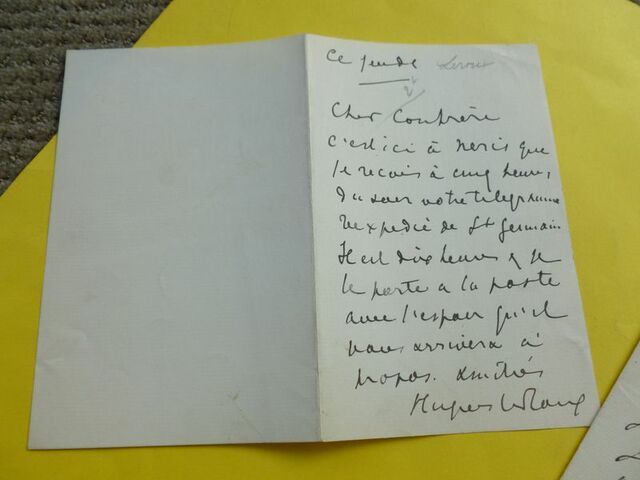 Ce jeudi Leroux
Cher Confrère
c'est ici à Neris que
je reçois à cinq heures,
du soir votre télégramme
réexpedié de St Germain
Il est dix heures & je
le porte à la poste
avec l'espoir qu'il
vous arrivera à
propos. Amitiés
Hugues Le Roux